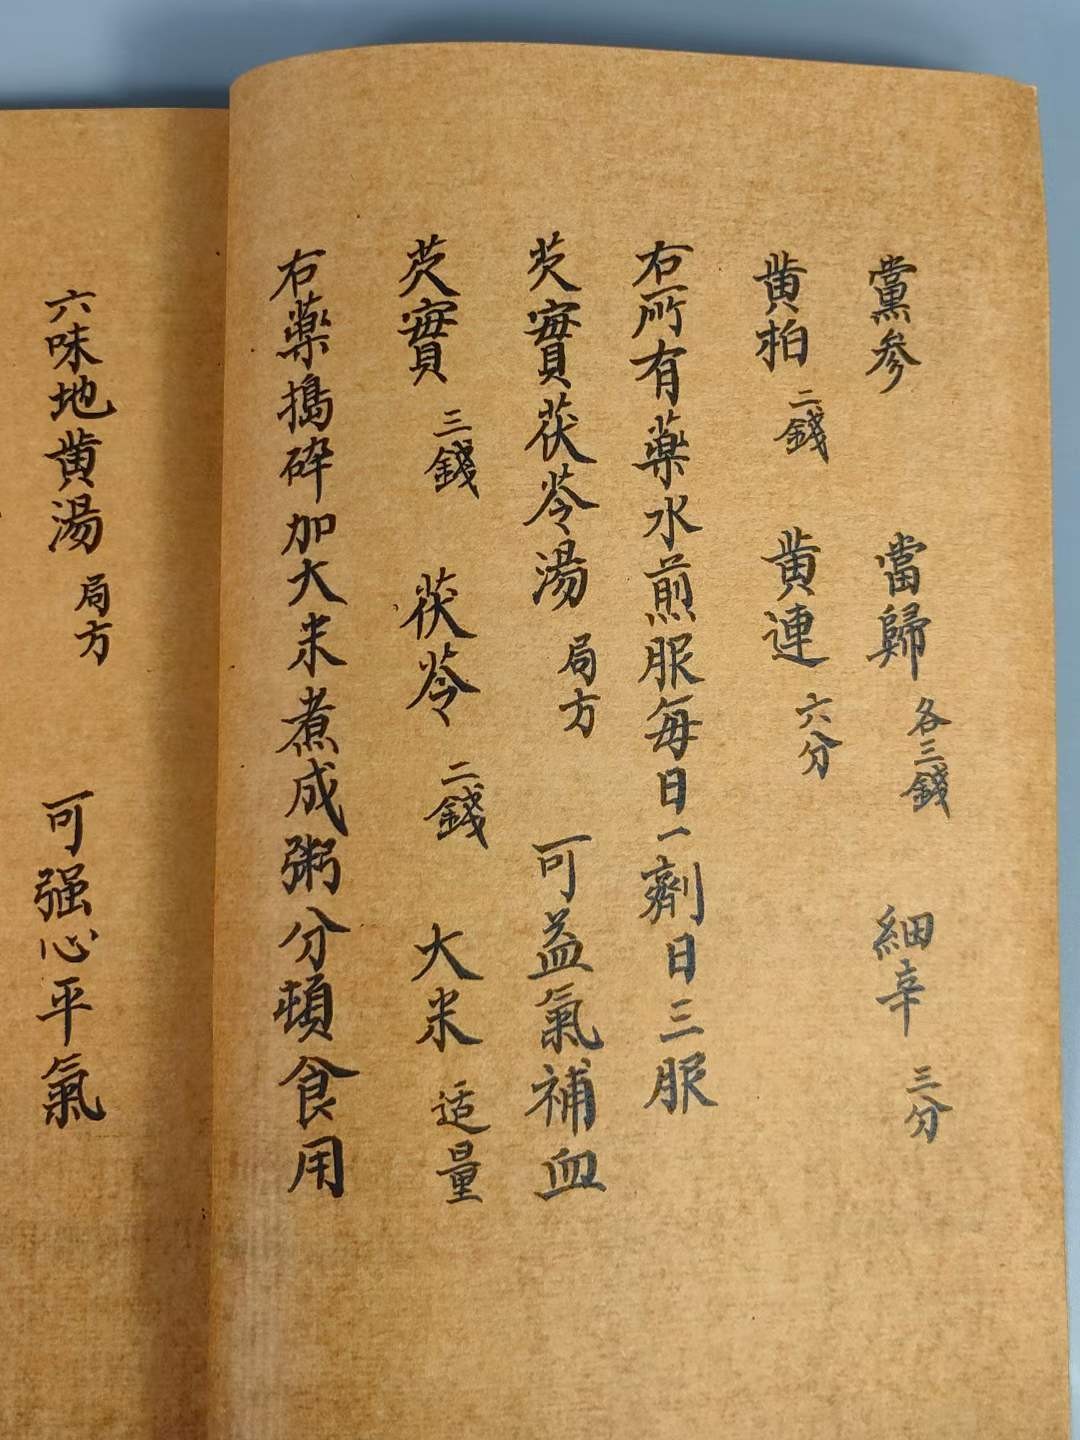 黨參 當歸 各三錢 細辛 三分
黄柏 二錢 黄連 六分
右所有藥水煎服每日一劑日三服
芡實茯苓湯 局方 可益氣補血
芡實 三錢 茯苓 二錢 大米 适量
右藥搗碎加大米煮成粥分頓食用
六味地黄湯 局方 可强心平氣